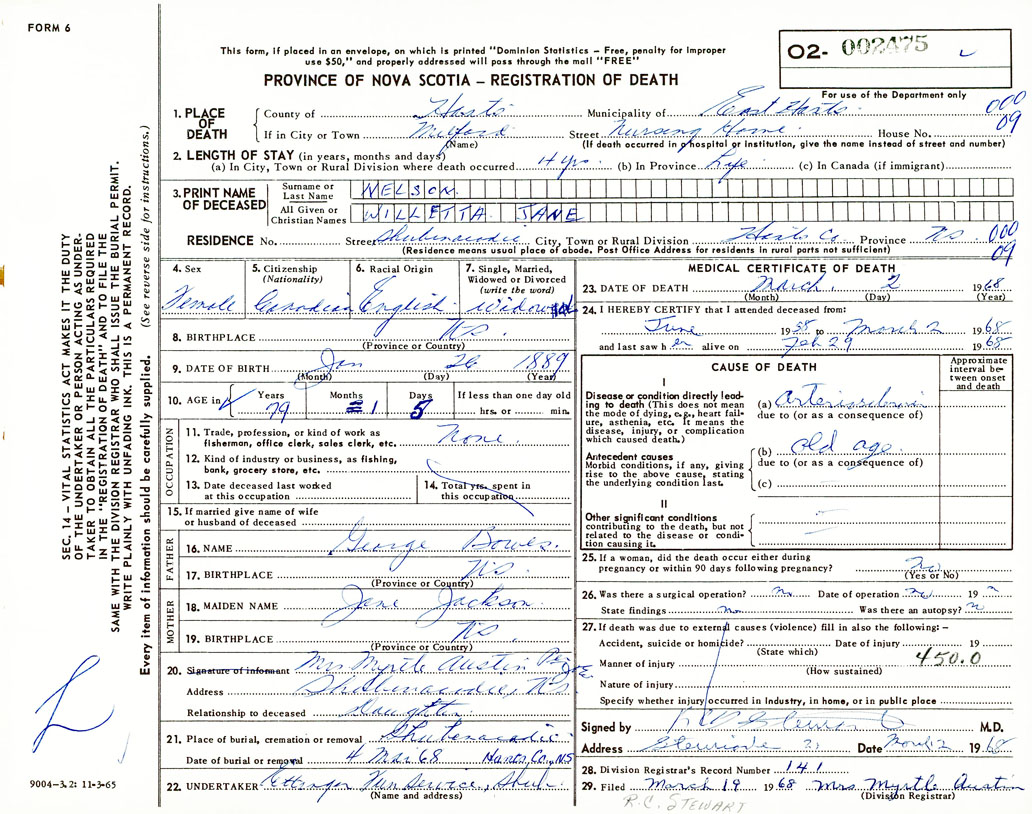 FORM 6
This form, if placed in an envelope, on which is printed "Dominion Statistics – Free, penalty for improper
use $50," and properly addressed will pass through the mail "FREE"
PROVINCE OF NOVA SCOTIA – REGISTRATION OF DEATH
O2- 002475
For use of the Department only
000
09
1. PLACE OF DEATH
County of Hants Municipality of East Hants
If in City or Town Milford Street Nursing Home House No.
(Name) (If death occurred in hospital or institution, give the name instead of street and number)
2. LENGTH OF STAY (in years, months and days)
(a) In City, Town or Rural Division where death occurred 4 yrs. (b) In Province Life (c) In Canada (if immigrant)
3. PRINT NAME OF DECEASED
Surname or Last Name NELSON
All Given or Christian Names WILLETTA JANE
RESIDENCE No. Street Shubenacadie City, Town or Rural Division Hants Co. Province N.S.
(Residence means usual place of abode. Post Office Address for residents in rural parts not sufficient)
000
09
4. Sex Female
5. Citizenship (Nationality) Canadian
6. Racial Origin English
7. Single, Married, Widowed or Divorced (write the word) Widowed
8. BIRTHPLACE N.S.
(Province or Country)
9. DATE OF BIRTH Jan 26 1889
(Month) (Day) (Year)
10. AGE in Years 79 Months 1 Days 5 If less than one day old hrs. or min.
OCCUPATION
11. Trade, profession, or kind of work as fisherman, office clerk, sales clerk, etc. None
12. Kind of industry or business, as fishing, bank, grocery store, etc.
13. Date deceased last worked at this occupation
14. Total yrs. spent in this occupation
15. If married give name of wife or husband of deceased
FATHER
16. NAME George Bowes
17. BIRTHPLACE N.S.
(Province or Country)
MOTHER
18. MAIDEN NAME Jane Jackson
19. BIRTHPLACE N.S.
(Province or Country)
20. Signature of informant Mrs Myrtle Austin
Address Shubenacadie, N.S.
Relationship to deceased Daughter
21. Place of burial, cremation or removal Shubenacadie
Date of burial or removal 4 Mar 68 Hants, Co., N.S
22. UNDERTAKER Ettinger Fun Service, Shub-
(Name and address)
MEDICAL CERTIFICATE OF DEATH
23. DATE OF DEATH March 2 1968
(Month) (Day) (Year)
24. I HEREBY CERTIFY that I attended deceased from:
June 1958 to March 2 1968
and last saw her alive on Feb 29 1968
CAUSE OF DEATH
Approximate interval between onset and death
I
Disease or condition directly leading to death (This does not mean the mode of dying, e.g., heart failure, asthenia, etc. It means the disease, injury, or complication which caused death.)
(a)
due to (or as a consequence of)
Antecedent causes
Morbid conditions, if any, giving rise to the above cause, stating the underlying condition last.
(b) old age
due to (or as a consequence of)
(c)
II
Other significant conditions contributing to the death, but not related to the disease or condition causing it.
25. If a woman, did the death occur either during
pregnancy or within 90 days following pregnancy? No
(Yes or No)
26. Was there a surgical operation? no Date of operation no 19
State findings no Was there an autopsy? n
27. If death was due to external causes (violence) fill in also the following: –
Accident, suicide or homicide? Date of injury 19
(State which)
Manner of injury 450.0
(How sustained)
Nature of injury
Specify whether injury occurred in Industry, in home, or in public place
Signed by M.D.
Address Date March 2 1968
28. Division Registrar's Record Number 141
29. Filed March 19 1968 Mrs Myrtle Austin
(Division Registrar)
R.C. STEWART
SEC. 14 – VITAL STATISTICS ACT MAKES IT THE DUTY
OF THE UNDERTAKER OR PERSON ACTING AS UNDER-
TAKER TO OBTAIN ALL THE PARTICULARS REQUIRED
IN THE "REGISTRATION OF DEATH" AND TO FILE THE
SAME WITH THE DIVISION REGISTRAR WHO SHALL ISSUE THE BURIAL PERMIT.
WRITE PLAINLY WITH UNFADING INK. THIS IS A PERMANENT RECORD.
Every item of information should be carefully supplied. (See reverse side for instructions.)
9004–3.2: 11-3-65